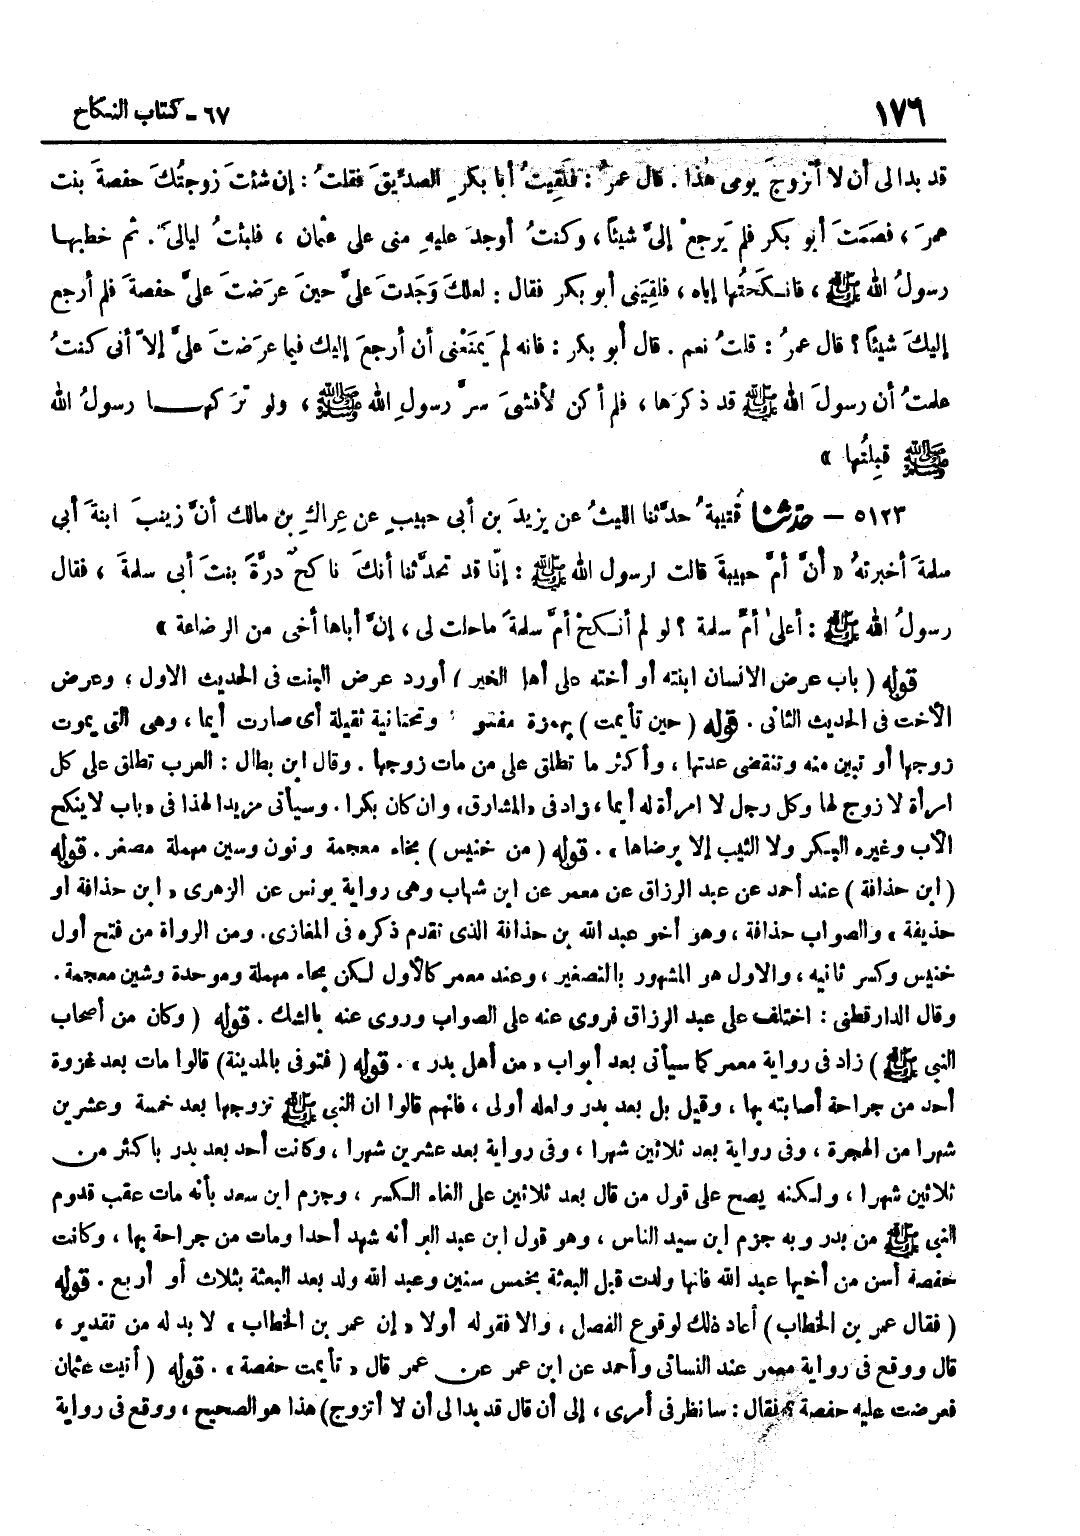 ١٧٦
٦٧ - كتاب النكاح
قد بدا لى أن لا أتزوجَ يومى هٰذا . قال عمرُ : فلَقِيتُ أبا بكرٍ الصدِّيقَ فقلتُ : إن شئتَ زوجتُكَ حفصةَ بنت
عمرَ ، فصمَتَ أبو بكر فلم يَرجعْ إلىَّ شيئًا ، وكنتُ أوجدَ عليهِ منى على عثمان ، فلبثتُ ليالىَ . ثم خطبها
رسولُ الله ﷺ ، فانـكَحتُها إياه ، فلقِيَنى أبو بكر فقال : لعلكَ وَجَدتَ علىَّ حينَ عرَضتَ علىَّ حفصةَ فلم أرجع
إليكَ شيئًا ؟ قال عمرُ : قلتُ نعم . قال أبو بكر : فانه لم يَمنَعْنى أن أرجعَ إليك فيما عرَضتَ علىَّ إلاّ أنى كنتُ
علمتُ أن رسولَ الله ﷺ قد ذكرَها ، فلم أكن لأفشىَ سرَّ رسولِ الله ﷺ ، ولو تركهـــا رسولُ الله
ﷺ قبِلتُها »
٥١٢٣ - حدّثنا قُتيبةُ حدَّثنا الليثُ عن يزيدَ بن أبى حبيبٍ عن عِراكِ بن مالك أنَّ زينبَ ابنةَ أبي
سلمةَ أخبرتهُ « أنَّ أمَّ حبيبةَ قالت لرسول الله ﷺ : إنّا قد تحدَّثنا أنكَ ناكحٌ درَّةَ بنتَ أبى سلمةَ ، فقال
رسولُ الله ﷺ : أعلىٰ أمِّ سلمة ؟ لو لم أنـكحْ أمَّ سلمةَ ماحلت لى ، إنَّ أباها أخى من الرضاعة »
قوله ( باب عرض الانسان ابنته أو أخته على أهل الخير ) أورد عرض البنت فى الحديث الاول ، وعرض
الأخت فى الحديث الثانى . قوله ( حين تأيمت ) بهمزة مفتوحة وتحتانية ثقيلة أى صارت أيما ، وهى التى يموت
زوجها أو تبين منه وتنقضى عدتها ، وأكثر ما تطلق على من مات زوجها . وقال ابن بطال : العرب تطلق على كل
امرأة لا زوج لها وكل رجل لا امرأة له أيما ، زاد فى « المشارق » وان كان بكرا . وسيأتى مزيد لهذا فى « باب لا ينكح
الأب وغيره البـكر ولا الثيب إلا برضاها » . قوله ( من خنيس ) بخاء معجمة ونون وسين مهملة مصغر . قوله
( ابن حذافة ) عند أحمد عن عبد الرزاق عن معمر عن ابن شهاب وهى رواية يونس عن الزهرى « ابن حذافة أو
حذيفة » والصواب حذافة ، وهو أخو عبد الله بن حذافة الذى تقدم ذكره فى المغازى . ومن الرواة من فتح أول
خنيس وكسر ثانيه ، والاول هو المشهور بالتصغير ، وعند معمر كالأول لـكن بحاء مهملة وموحدة وشين معجمة .
وقال الدارقطنى : اختلف على عبد الرزاق فروى عنه على الصواب وروى عنه بالشك . قوله ( وكان من أصحاب
النبى ﷺ ) زاد فى رواية معمر كما سيأتى بعد أبواب « من أهل بدر » . قوله ( فتوفى بالمدينة ) قالوا مات بعد غزوة
أحد من جراحة أصابته بها ، وقيل بل بعد بدر ولعله أولى ، فانهم قالوا ان النبي ﷺ تزوجها بعد خمسة وعشرين
شهرا من الهجرة ، وفى رواية بعد ثلاثين شهرا ، وفى رواية بعد عشرين شهرا ، وكانت أحد بعد بدر بأكثر من
ثلاثين شهرا ، ولـكنه يصح على قول من قال بعد ثلاثين على الغاء الـكسر ، وجزم ابن سعد بأنه مات عقب قدوم
النبى ﷺ من بدر وبه جزم ابن سيد الناس ، وهو قول ابن عبد البر أنه شهد أحدا ومات من جراحة بها ، وكانت
حفصة أسن من أخيها عبد الله فانها ولدت قبل البعثة بخمس سنين وعبد الله ولد بعد البعثة بثلاث أو أربع . قوله
( فقال عمر بن الخطاب ) أعاد ذلك لوقوع الفصل ، والا فقوله أولا « إن عمر بن الخطاب » لا بد له من تقدير ،
قال ووقع فى رواية معمر عند النسائى وأحمد عن ابن عمر عن عمر قال « تأيمت حفصة » . قوله ( أتيت عثمان
فعرضت عليه حفصة فقال : سانظر فى أمرى ، إلى أن قال قد بدا لى أن لا أتزوج ) هذا هو الصحيح ، ووقع فى رواية